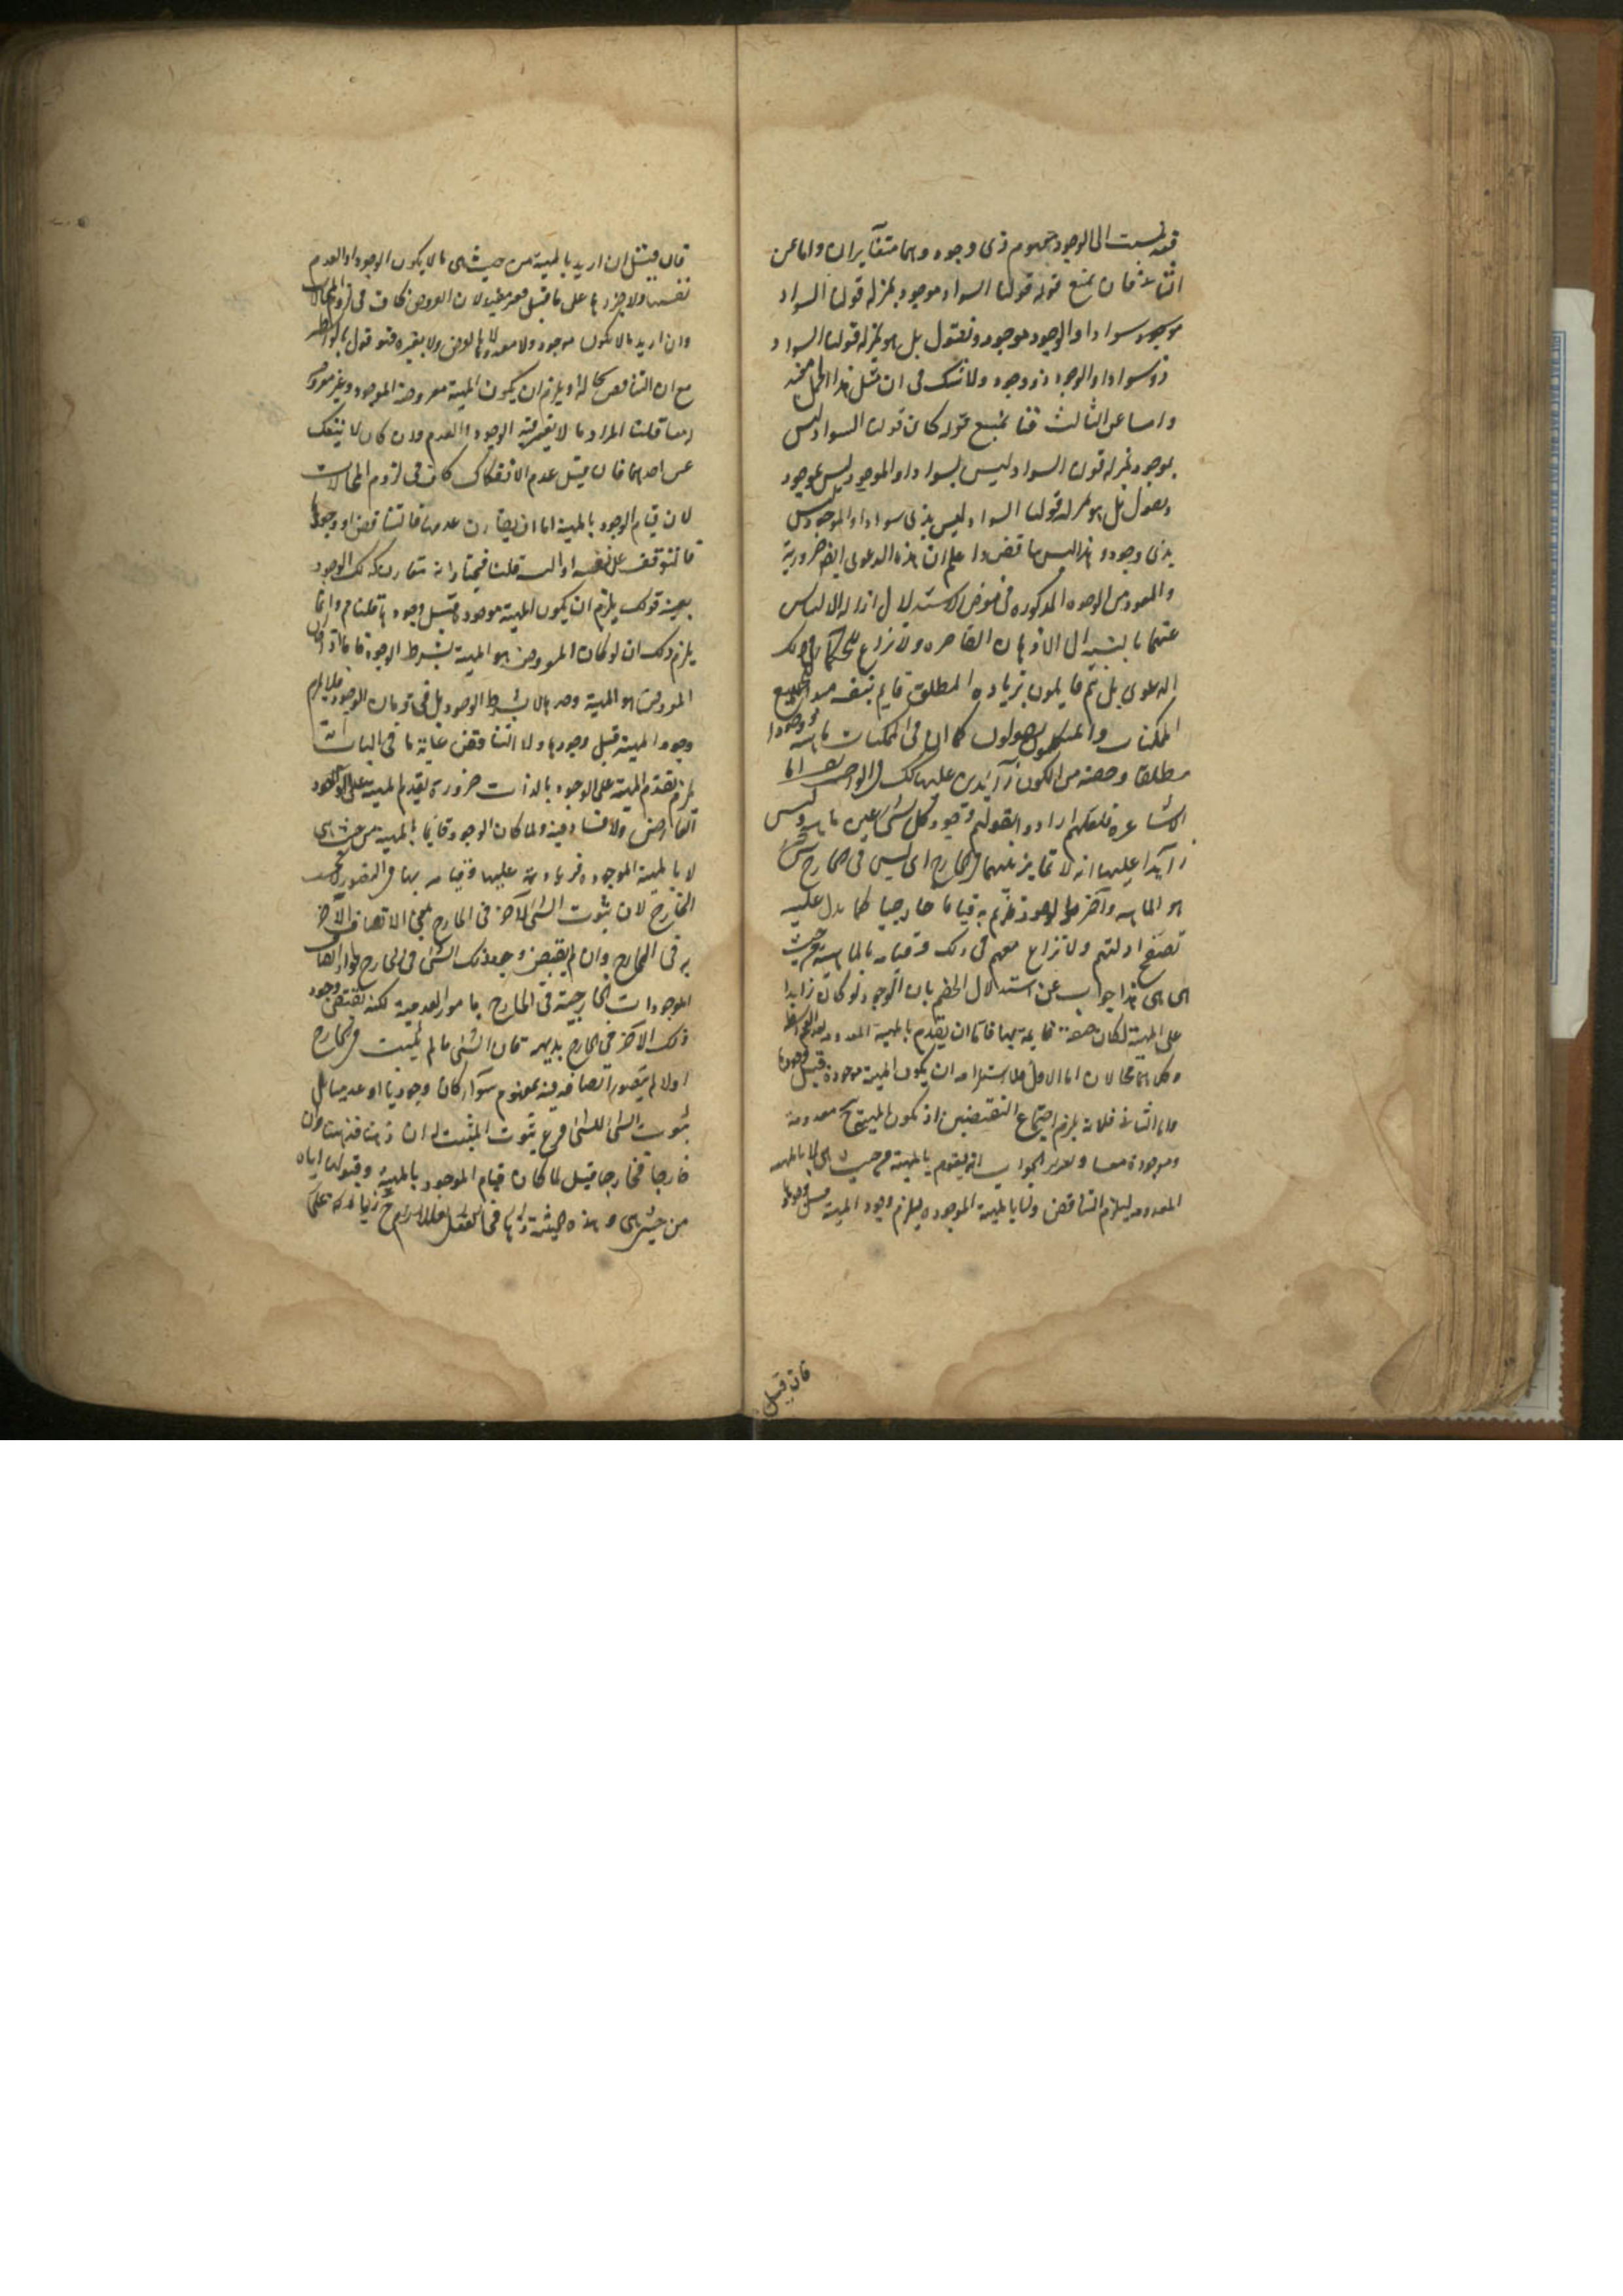 فقد نسبت الى الوجود بمفهوم ذى وجود وهما متغايران واما عن
الثانى فان نمنع قوله قولنا السواد موجود بمنزلة قولنا السواد
موجود سواد او الوجود موجود ونقول بل هو بمنزلة قولنا السواد
ذو سواد او الوجود ذو وجود ولا شك فى ان مثل هذا الحمل مفيد
واما عن الثالث فنا نمنع قوله كان قولنا السواد ليس
بموجود بمنزلة قولنا السواد ليس بسواد او الموجود ليس بموجود
ونقول بل هو بمنزلة قولنا السواد ليس بذى سواد او الموجود ليس
بذى وجود وهذا ليس تناقض واعلم ان هذه الدعوى ايضا ضرورية
والمقصود من الوجوه المذكورة فى معرض الاستدلال ازالة الالتباس
عنها بالنسبة الى الاذهان القاصرة ولا نزاع للحكماء فى تلك
الدعوى بل هم قايلون بزيادة المطلق قايم بنفسه مبدا لجميع
الممكنات والمتكلمون يقولون كما ان فى الممكنات ماهية ووجودا
مطلقا وحصة من الكون زايدين عليها كذلك فى الواجب تعالى اما
الاشاعرة فلعلهم ارادوا بقولهم وجود كل شئ عين ماهيته وليس
زايدا عليها انه لا تمايز بينهما فى الخارج اى ليس فى الخارج شئ
هو الماهية وآخر هو الوجود قايم به قياما خارجيا كما يدل عليه
تصفح ادلتهم ولا نزاع معهم فى ذلك وقيامه بالماهية من حيث
هى هى هذا جواب عن استدلال الخصم بان الوجود لو كان زايدا
على المهية لكان صفة قايمة بها فاما ان يقوم بالمهية المعدومة
وكلاهما محالان اما الاول فلاستلزامه ان يكون المهية موجودة قبل وجودها
واما الثانى فلانه يلزم اجتماع النقيضين اذ تكون المهية ح معدومة
وموجودة معا وتقرير الجواب انه يقوم بالمهية من حيث هى لا بالمهية
المعدومة ليلزم التناقض ولا بالمهية الموجودة ليلزم وجود المهية قبل وجودها
فان قيل
فان قيل ان اريد بالمهية من حيث هى ما لا يكون الوجود او العدم
نفسها ولا جزءها على ما قيل فغير مفيد لان العروض كاف فى لزوم المحالات
وان اريد ما لا يكون موجودا ولا معدوما لا بالعروض ولا بغيره فهو قول بالواسطة
مع ان التناقض بحاله ويلزم ان يكون المهية معروضة للوجود وغير معروضة
معا قلنا المراد ما لا يعتبر فيه الوجود او العدم وان كان لا ينفك
عن احدهما فان قيل عدم الانفكاك كاف فى لزوم المحالات
لان قيام الوجود بالمهية اما ان يقارن عدمها فالتناقض او وجودها
فالتوقف على نفسه او التسلسل قلنا فيختار انه يقارن ذلك الوجود
بعينه قولك يلزم ان يكون المهية موجودة قبل وجودها قلنا م وانما
يلزم ذلك ان لو كان المعروض هو المهية بشرط الوجود فاما اذا كان
المعروض هو المهية وحدها لا بشرط الوجود بل فى زمان الوجود فلا يلزم
وجود المهية قبل وجودها ولا التناقض غاية ما فى الباب انه
يلزم تقدم المهية على الوجود بالذات ضرورة تقدم المهية على الوجود
العارض ولا فساد فيه ولما كان الوجود قايما بالمهية من حيث هى
لا بالمهية الموجودة فزيادته عليها وقيامه بها فى التصور بحسب
الخارج لان ثبوت الشئ للاخر فى الخارج بمعنى الاتصاف الاخر
به فى الخارج وان لم يقتض وجود ذلك الشئ فى الخارج لجواز اتصاف
الموجودات الخارجية فى الخارج بامور العدمية لكنه يقتضى وجود
ذلك الاخر فى الخارج بديهة فان الشئ ما لم يثبت فى الخارج
اولا لم يتصور اتصافه فيه بمفهوم سواء كان وجوديا او عدميا بل
ثبوت الشئ للشئ فرع ثبوت المثبت له ان ذهنا فذهنا وان
خارجا فخارجا قيل لما كان قيام الوجود بالمهية وقبولها اياه
من حيث هى وهذه حيثية انما هى فى العقل فلا زيادة